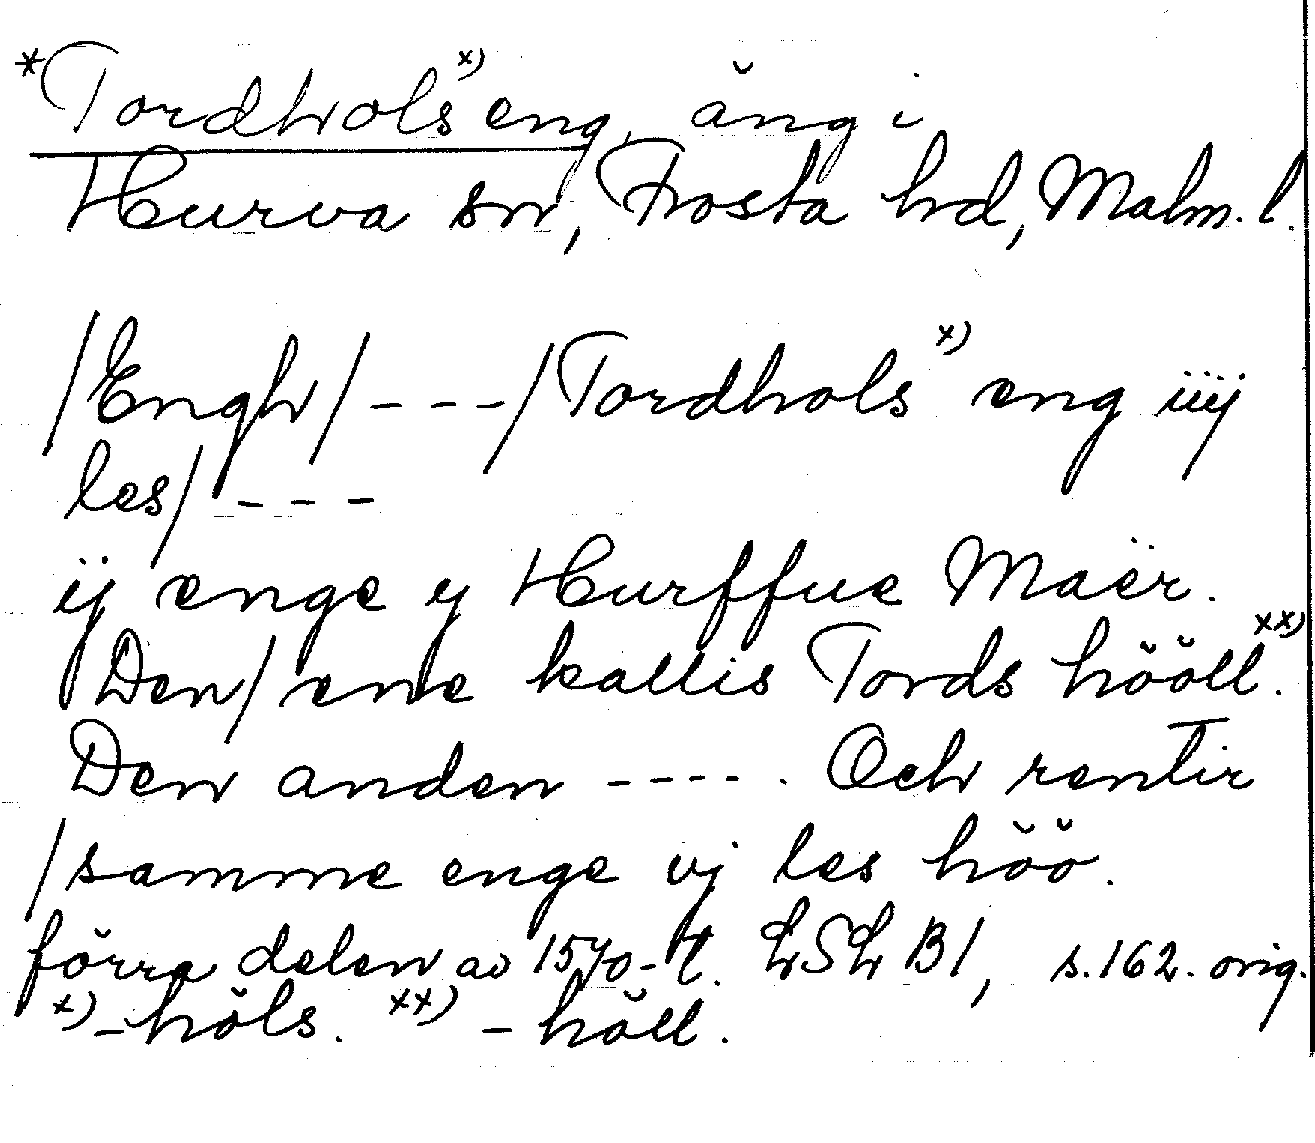 *Tordhols x) eng, äng i
Hurva sn, Frosta hd, Malm. l.
/Engh/ - - - /Tordhols x) eng iiij
les/ - - -
ij enge y Hurffue Maër.
Den/ ene kallis Tords hööll. xx)
Den anden - - - - . Och rentir
/samme enge vj les höö.
förra delen av 1570-t. LSL B1, s. 162. orig.
x) -höls. xx) -höll.